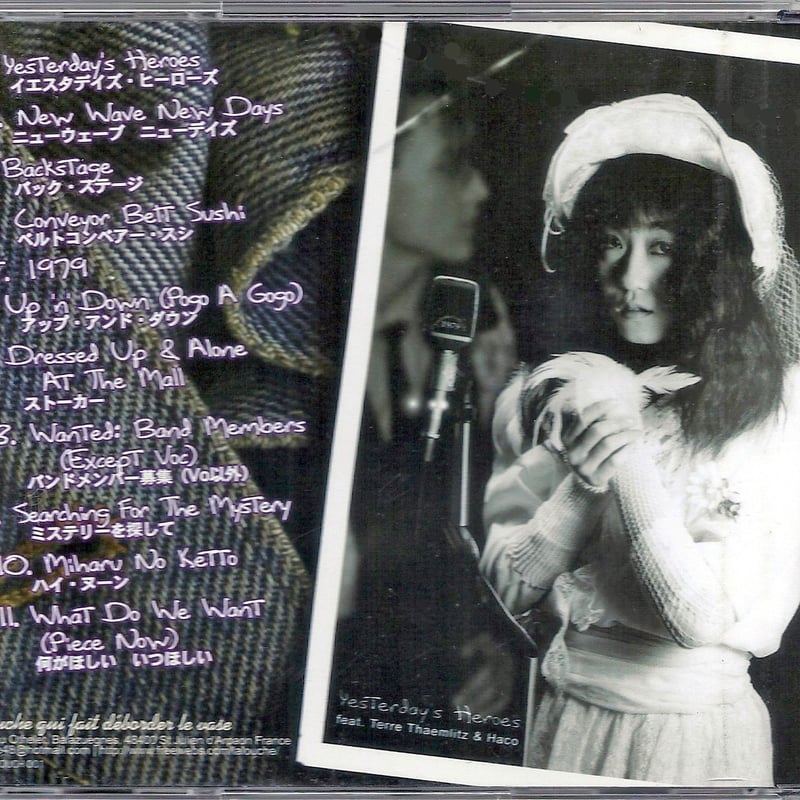 Yesterday's Heroes
イエスタデイズ・ヒーローズ
. New Wave New Days
ニューウェーブ ニューデイズ
Backstage
バック・ステージ
Conveyor Belt Sushi
ベルトコンベアー・スシ
. 1979
Up 'n' Down (Pogo A Gogo)
アップ・アンド・ダウン
Dressed Up & Alone
At The Mall
ストーカー
8. Wanted: Band Members
(Except Voc)
バンドメンバー募集 (Vo以外)
. Searching For The Mystery
ミステリーを探して
10. Miharu No Ketto
ハイ・ヌーン
11. What Do We Want
(Piece Now)
何がほしい いつほしい
Yesterday's Heroes
feat. Terre Thaemlitz & Haco
uche qui fait déborder le vase
Othelet, Balazuegnes, 48400 St Julien d'Arpaon France
48@hotmail.com | http://www.freewebs.com/lalouche
001